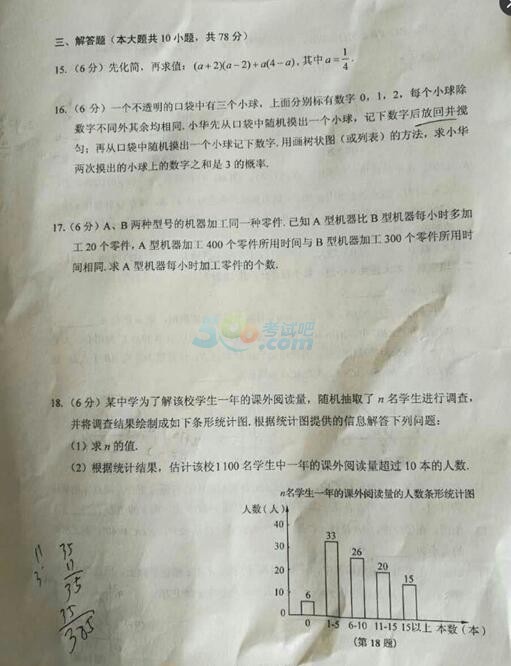 三、解答题（本大题共 10 小题，共 78 分）
15.（6 分）先化简，再求值：(a+2)(a−2)+a(4−a)，其中 a=1/4.
16.（6 分）一个不透明的口袋中有三个小球，上面分别标有数字 0，1，2，每个小球除
数字不同外其余均相同. 小华先从口袋中随机摸出一个小球，记下数字后放回并搅
匀；再从口袋中随机摸出一个小球记下数字. 用画树状图（或列表）的方法，求小华
两次摸出的小球上的数字之和是 3 的概率.
17.（6 分）A、B 两种型号的机器加工同一种零件. 已知 A 型机器比 B 型机器每小时多加
工 20 个零件，A 型机器加工 400 个零件所用时间与 B 型机器加工 300 个零件所用时
间相同. 求 A 型机器每小时加工零件的个数.
366考试吧
.com
18.（6 分）某中学为了解该校学生一年的课外阅读量，随机抽取了 n 名学生进行调查，
并将调查结果绘制成如下条形统计图. 根据统计图提供的信息解答下列问题：
（1）求 n 的值.
（2）根据统计结果，估计该校 1100 名学生中一年的课外阅读量超过 10 本的人数.
n名学生一年的课外阅读量的人数条形统计图
人数（人）
40
33
30
26
20
20
15
10
6
0
0 1-5 6-10 11-15 15以上 本数（本）
（第 18 题）
11
3
35
11
35
35
385